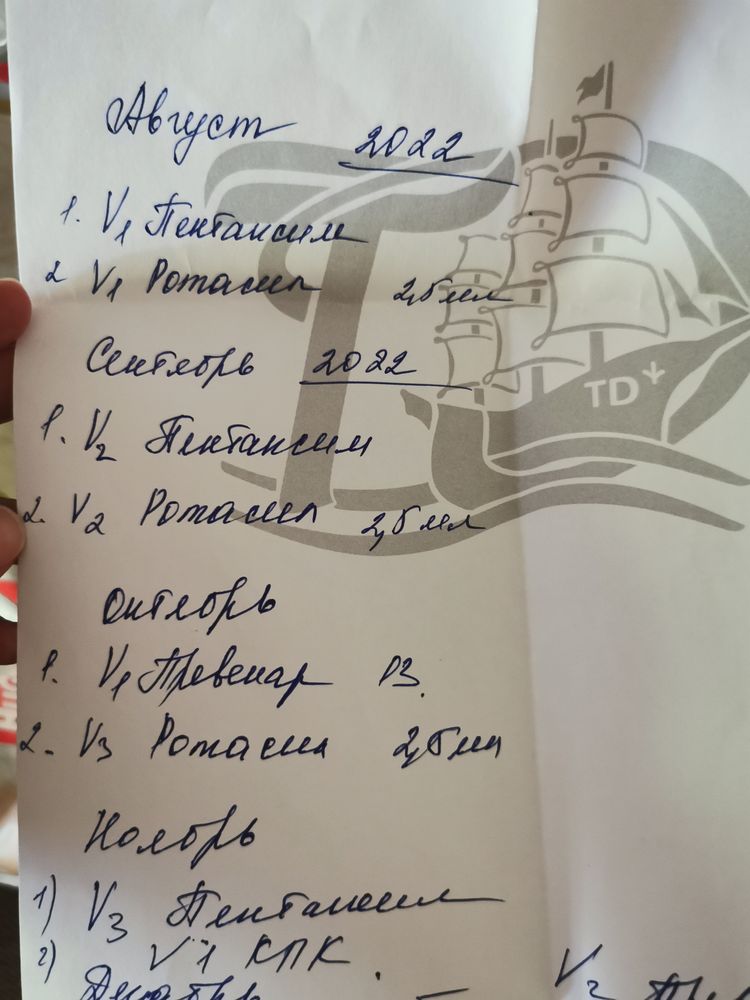 Август 2022
1. V1 Пентаксим
2 V1 Ротасил 2,5 мл
Сентябрь 2022
1. V2 Пентаксим
2. V2 Ротасил 2,5 мл
TD
Октябрь
1. V1 Превенар 13.
2. V3 Ротасил 2,5 мл
Ноябрь
1) V3 Пентаксим
2) V1 КПК.
Декабрь – V2